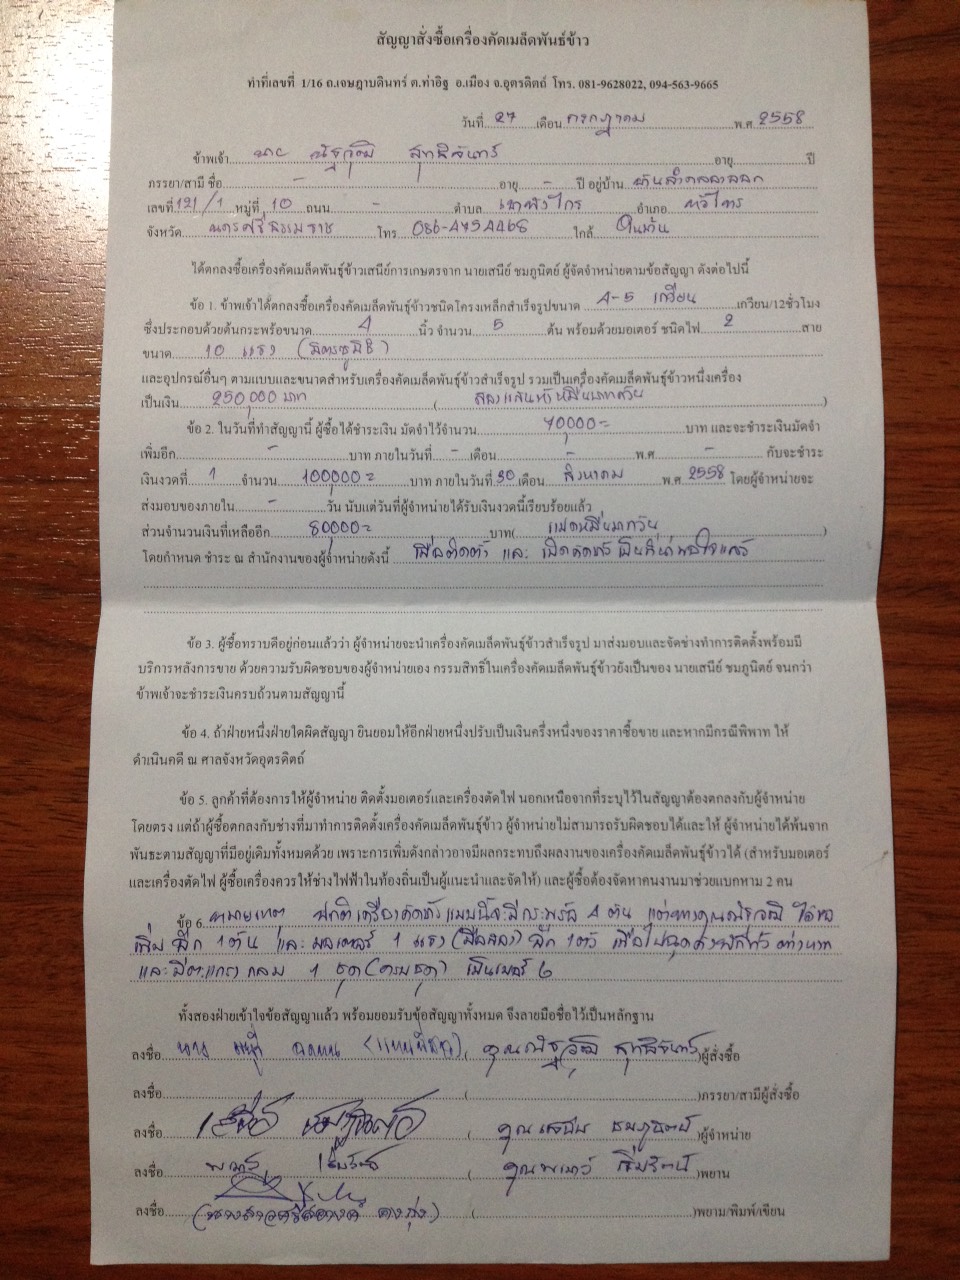 สัญญาสั่งซื้อเครื่องคัดเมล็ดพันธ์ข้าว
ทำที่เลขที่ 1/16 ถ.เจษฎาบดินทร์ ต.ท่าอิฐ อ.เมือง จ.อุตรดิตถ์ โทร. 081-9628022, 094-563-9665
วันที่ 27 เดือน กรกฎาคม พ.ศ 2558
ข้าพเจ้า นาย ณัฐวุฒิ สุทธิจันทร์ อายุ ปี
ภรรยา/สามี ชื่อ - อายุ - ปี อยู่บ้าน
เลขที่ 121/1 หมู่ที่ 10 ถนน - ตำบล เขาพังไกร อำเภอ หัวไทร
จังหวัด นครศรีธรรมราช โทร 086-4954468 ใกล้
ได้ตกลงซื้อเครื่องคัดเมล็ดพันธุ์ข้าวเสนีย์การเกษตรจาก นายเสนีย์ ชมภูนิตย์ ผู้จัดจำหน่ายตามข้อสัญญา ดังต่อไปนี้
ข้อ 1. ข้าพเจ้าได้ตกลงซื้อเครื่องคัดเมล็ดพันธุ์ข้าวชนิดโครงเหล็กสำเร็จรูปขนาด 4-5 เกวียน เกวียน/12ชั่วโมง
ซึ่งประกอบด้วยต้นกระพร้อขนาด 4 นิ้ว จำนวน 5 ต้น พร้อมด้วยมอเตอร์ ชนิดไฟ 2 สาย
ขนาด 10 แรง (มิตซูบิชิ)
และอุปกรณ์อื่นๆ ตามแบบและขนาดสำหรับเครื่องคัดเมล็ดพันธุ์ข้าวสำเร็จรูป รวมเป็นเครื่องคัดเมล็ดพันธุ์ข้าวหนึ่งเครื่อง
เป็นเงิน 250,000 บาท ( สองแสนห้าหมื่นบาทถ้วน )
ข้อ 2. ในวันที่ทำสัญญานี้ ผู้ซื้อได้ชำระเงิน มัดจำไว้จำนวน 70,000= บาท และจะชำระเงินมัดจำ
เพิ่มอีก - บาท ภายในวันที่ - เดือน - พ.ศ - กับจะชำระ
เงินงวดที่ 1 จำนวน 100,000= บาท ภายในวันที่ 30 เดือน สิงหาคม พ.ศ 2558 โดยผู้จำหน่ายจะ
ส่งมอบของภายใน - วัน นับแต่วันที่ผู้จำหน่ายได้รับเงินงวดนี้เรียบร้อยแล้ว
ส่วนจำนวนเงินที่เหลืออีก 80,000= บาท( แปดหมื่นบาทถ้วน )
โดยกำหนด ชำระ ณ สำนักงานของผู้จำหน่ายดังนี้ เมื่อติดตั้ง และ เปิดคัดข้าวเป็นที่น่าพอใจแล้ว
ข้อ 3. ผู้ซื้อทราบดีอยู่ก่อนแล้วว่า ผู้จำหน่ายจะนำเครื่องคัดเมล็ดพันธุ์ข้าวสำเร็จรูป มาส่งมอบและจัดช่างทำการติดตั้งพร้อมมี
บริการหลังการขาย ด้วยความรับผิดชอบของผู้จำหน่ายเอง กรรมสิทธิ์ในเครื่องคัดเมล็ดพันธุ์ข้าวยังเป็นของ นายเสนีย์ ชมภูนิตย์ จนกว่า
ข้าพเจ้าจะชำระเงินครบถ้วนตามสัญญานี้
ข้อ 4. ถ้าฝ่ายหนึ่งฝ่ายใดผิดสัญญา ยินยอมให้อีกฝ่ายหนึ่งปรับเป็นเงินครึ่งหนึ่งของราคาซื้อขาย และหากมีกรณีพิพาท ให้
ดำเนินคดี ณ ศาลจังหวัดอุตรดิตถ์
ข้อ 5. ลูกค้าที่ต้องการให้ผู้จำหน่าย ติดตั้งมอเตอร์และเครื่องตัดไฟ นอกเหนือจากที่ระบุไว้ในสัญญาต้องตกลงกับผู้จำหน่าย
โดยตรง แต่ถ้าผู้ซื้อตกลงกับช่างที่มาทำการติดตั้งเครื่องคัดเมล็ดพันธุ์ข้าว ผู้จำหน่ายไม่สามารถรับผิดชอบได้และให้ ผู้จำหน่ายได้พ้นจาก
พันธะตามสัญญาที่มีอยู่เดิมทั้งหมดด้วย เพราะการเพิ่มดังกล่าวอาจมีผลกระทบถึงผลงานของเครื่องคัดเมล็ดพันธุ์ข้าวได้ (สำหรับมอเตอร์
และเครื่องตัดไฟ ผู้ซื้อเครื่องควรให้ช่างไฟฟ้าในท้องถิ่นเป็นผู้แนะนำและจัดให้) และผู้ซื้อต้องจัดหาคนงานมาช่วยแบกหาม 2 คน
ข้อ 6 หมายเหตุ ปกติเครื่องคัดข้าวแบบนี้จะมีกระพร้อ 4 ต้น แต่ทางคุณณัฐวุฒิ ได้ขอ
เพิ่ม อีก 1 ต้น และ มอเตอร์ 1 แรง (มือสอง) อีก 1 ตัว
และมีตะแกรง กลม 1 ชุด (ครบชุด) เป็นเบอร์ 6
ทั้งสองฝ่ายเข้าใจข้อสัญญาแล้ว พร้อมยอมรับข้อสัญญาทั้งหมด จึงลายมือชื่อไว้เป็นหลักฐาน
ลงชื่อ ( คุณณัฐวุฒิ สุทธิจันทร์ )ผู้สั่งซื้อ
ลงชื่อ ( )ภรรยา/สามีผู้สั่งซื้อ
ลงชื่อ ( คุณเสนีย์ ชมภูนิตย์ )ผู้จำหน่าย
ลงชื่อ ( )พยาน
ลงชื่อ ( )พยาม/พิมพ์/เขียน